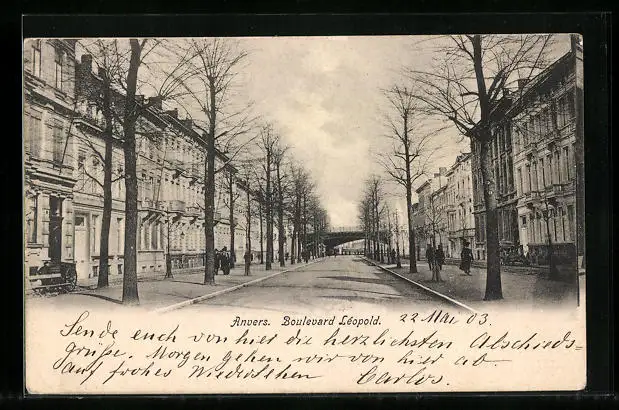 Anvers. Boulevard Léopold. 22 Mai 03.
Sende euch von hier die herzlichsten Abschieds-
grüße. Morgen gehen wir von hier ab.
Auf frohes Wiedersehen Carlos.